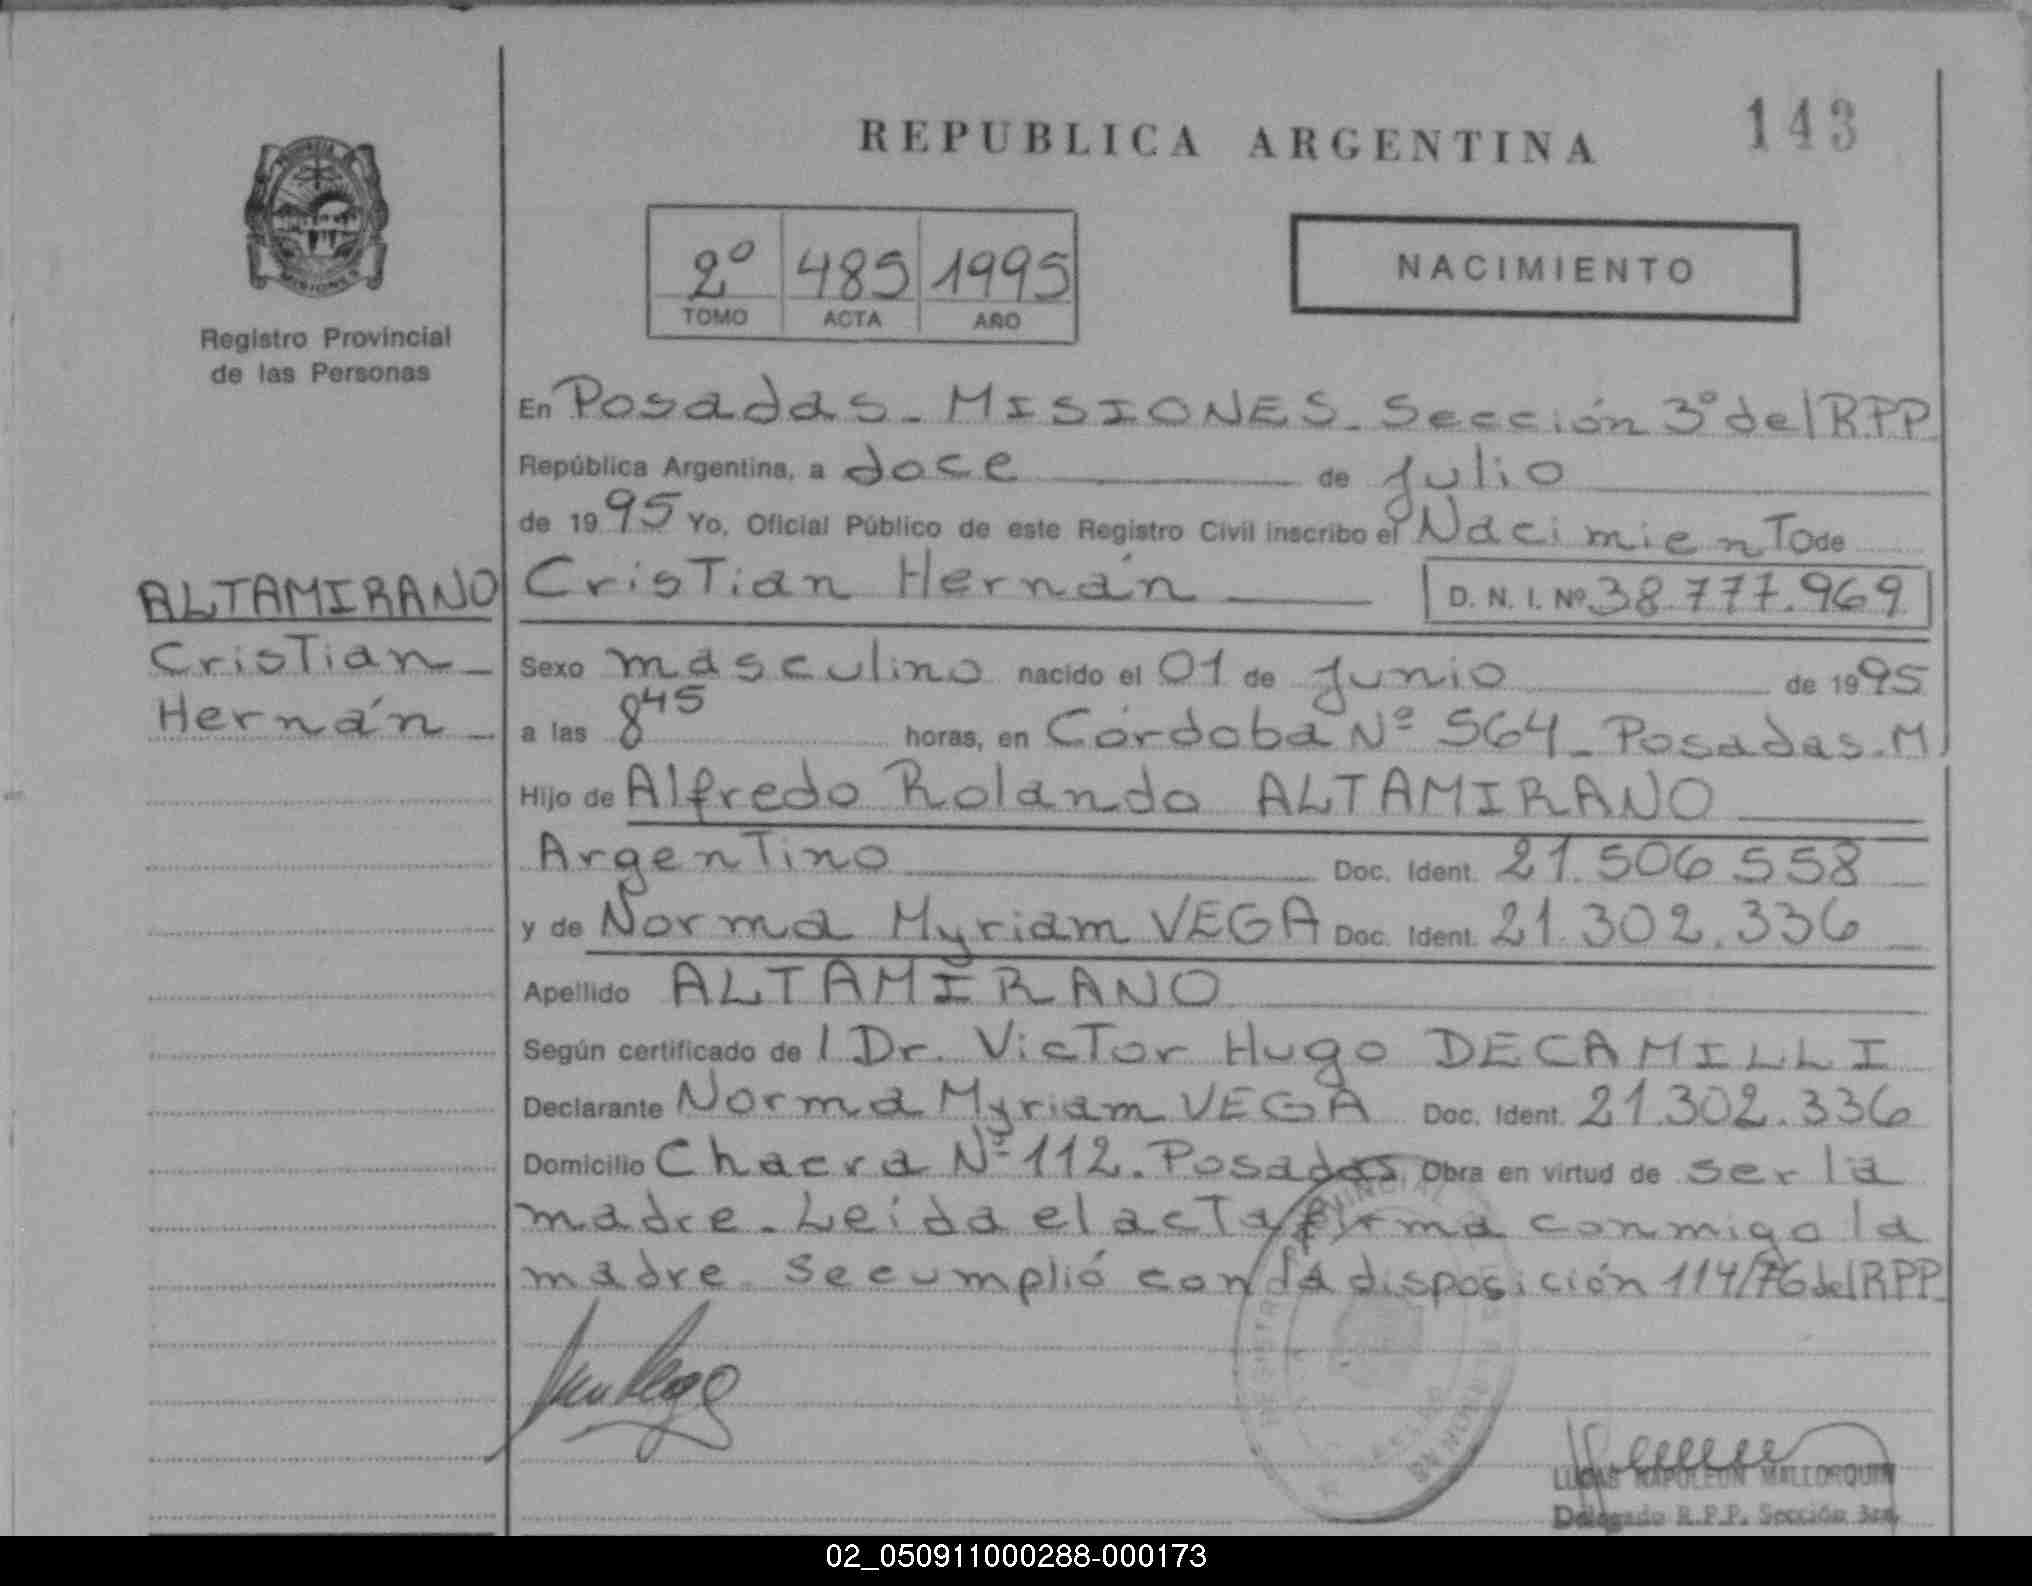 REPUBLICA ARGENTINA
143
2º 485 1995
TOMO ACTA AÑO
NACIMIENTO
Registro Provincial
de las Personas
En Posadas - MISIONES - Sección 3º del RPP
República Argentina, a doce de Julio
de 1995 Yo, Oficial Público de este Registro Civil inscribo el Nacimiento de
Cristian Hernán D. N. I. Nº 38.777.969
ALTAMIRANO
Cristian
Hernán
Sexo masculino nacido el 01 de Junio de 1995
a las 8 45 horas, en Córdoba Nº 564 - Posadas - M
Hijo de Alfredo Rolando ALTAMIRANO
Argentino Doc. Ident. 21.506.558
y de Norma Myriam VEGA Doc. Ident. 21.302.336
Apellido ALTAMIRANO
Según certificado de l Dr. Victor Hugo DECAMILLI
Declarante Norma Myriam VEGA Doc. Ident. 21.302.336
Domicilio Chacra Nº 112. Posadas Obra en virtud de ser la
madre. Leída el acta firma conmigo la
madre. Se cumplió con la disposición 114/76 del RPP
LUCAS NAPOLEON MALLORQUIN
Delegado R.P.P. Sección 3ra.
02_050911000288-000173